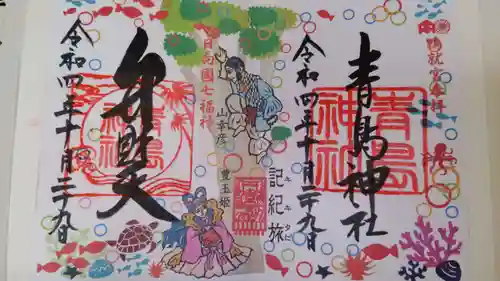 鴨就宮奉拝
青島神社
青島神社
令和四年十月二十九日
日向國七福社
山幸彦
豊玉姫
記紀旅
キキタビ
弁財天
青島神社
令和四年十月二十九日